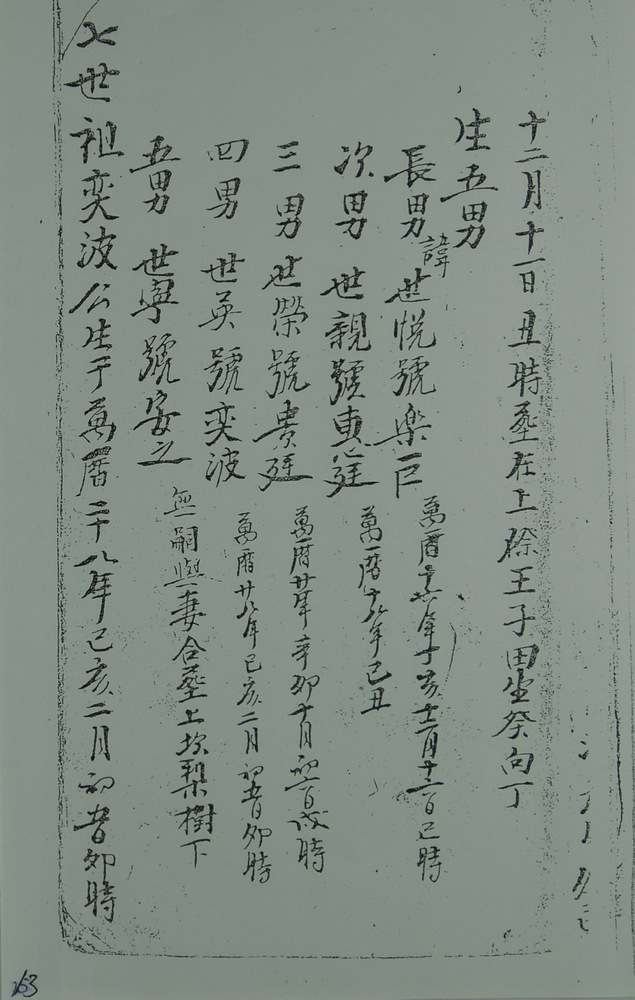 十二月十一日丑時塟在上除王子田坐癸向丁
生五男
長男諱世悦號樂臣 萬曆十六年丁亥十二月十二日巳時
次男世親號惠廷 萬曆十九年己丑
三男世榮號貴廷 萬曆廿年辛卯十月初一日戌時
四男世英號奕波 萬曆廿八年己亥二月初五日卯時
五男世寧號安之 無嗣與妻合塟上坎梨樹下
七世祖奕波公生于萬曆二十八年己亥二月初五日卯時
263